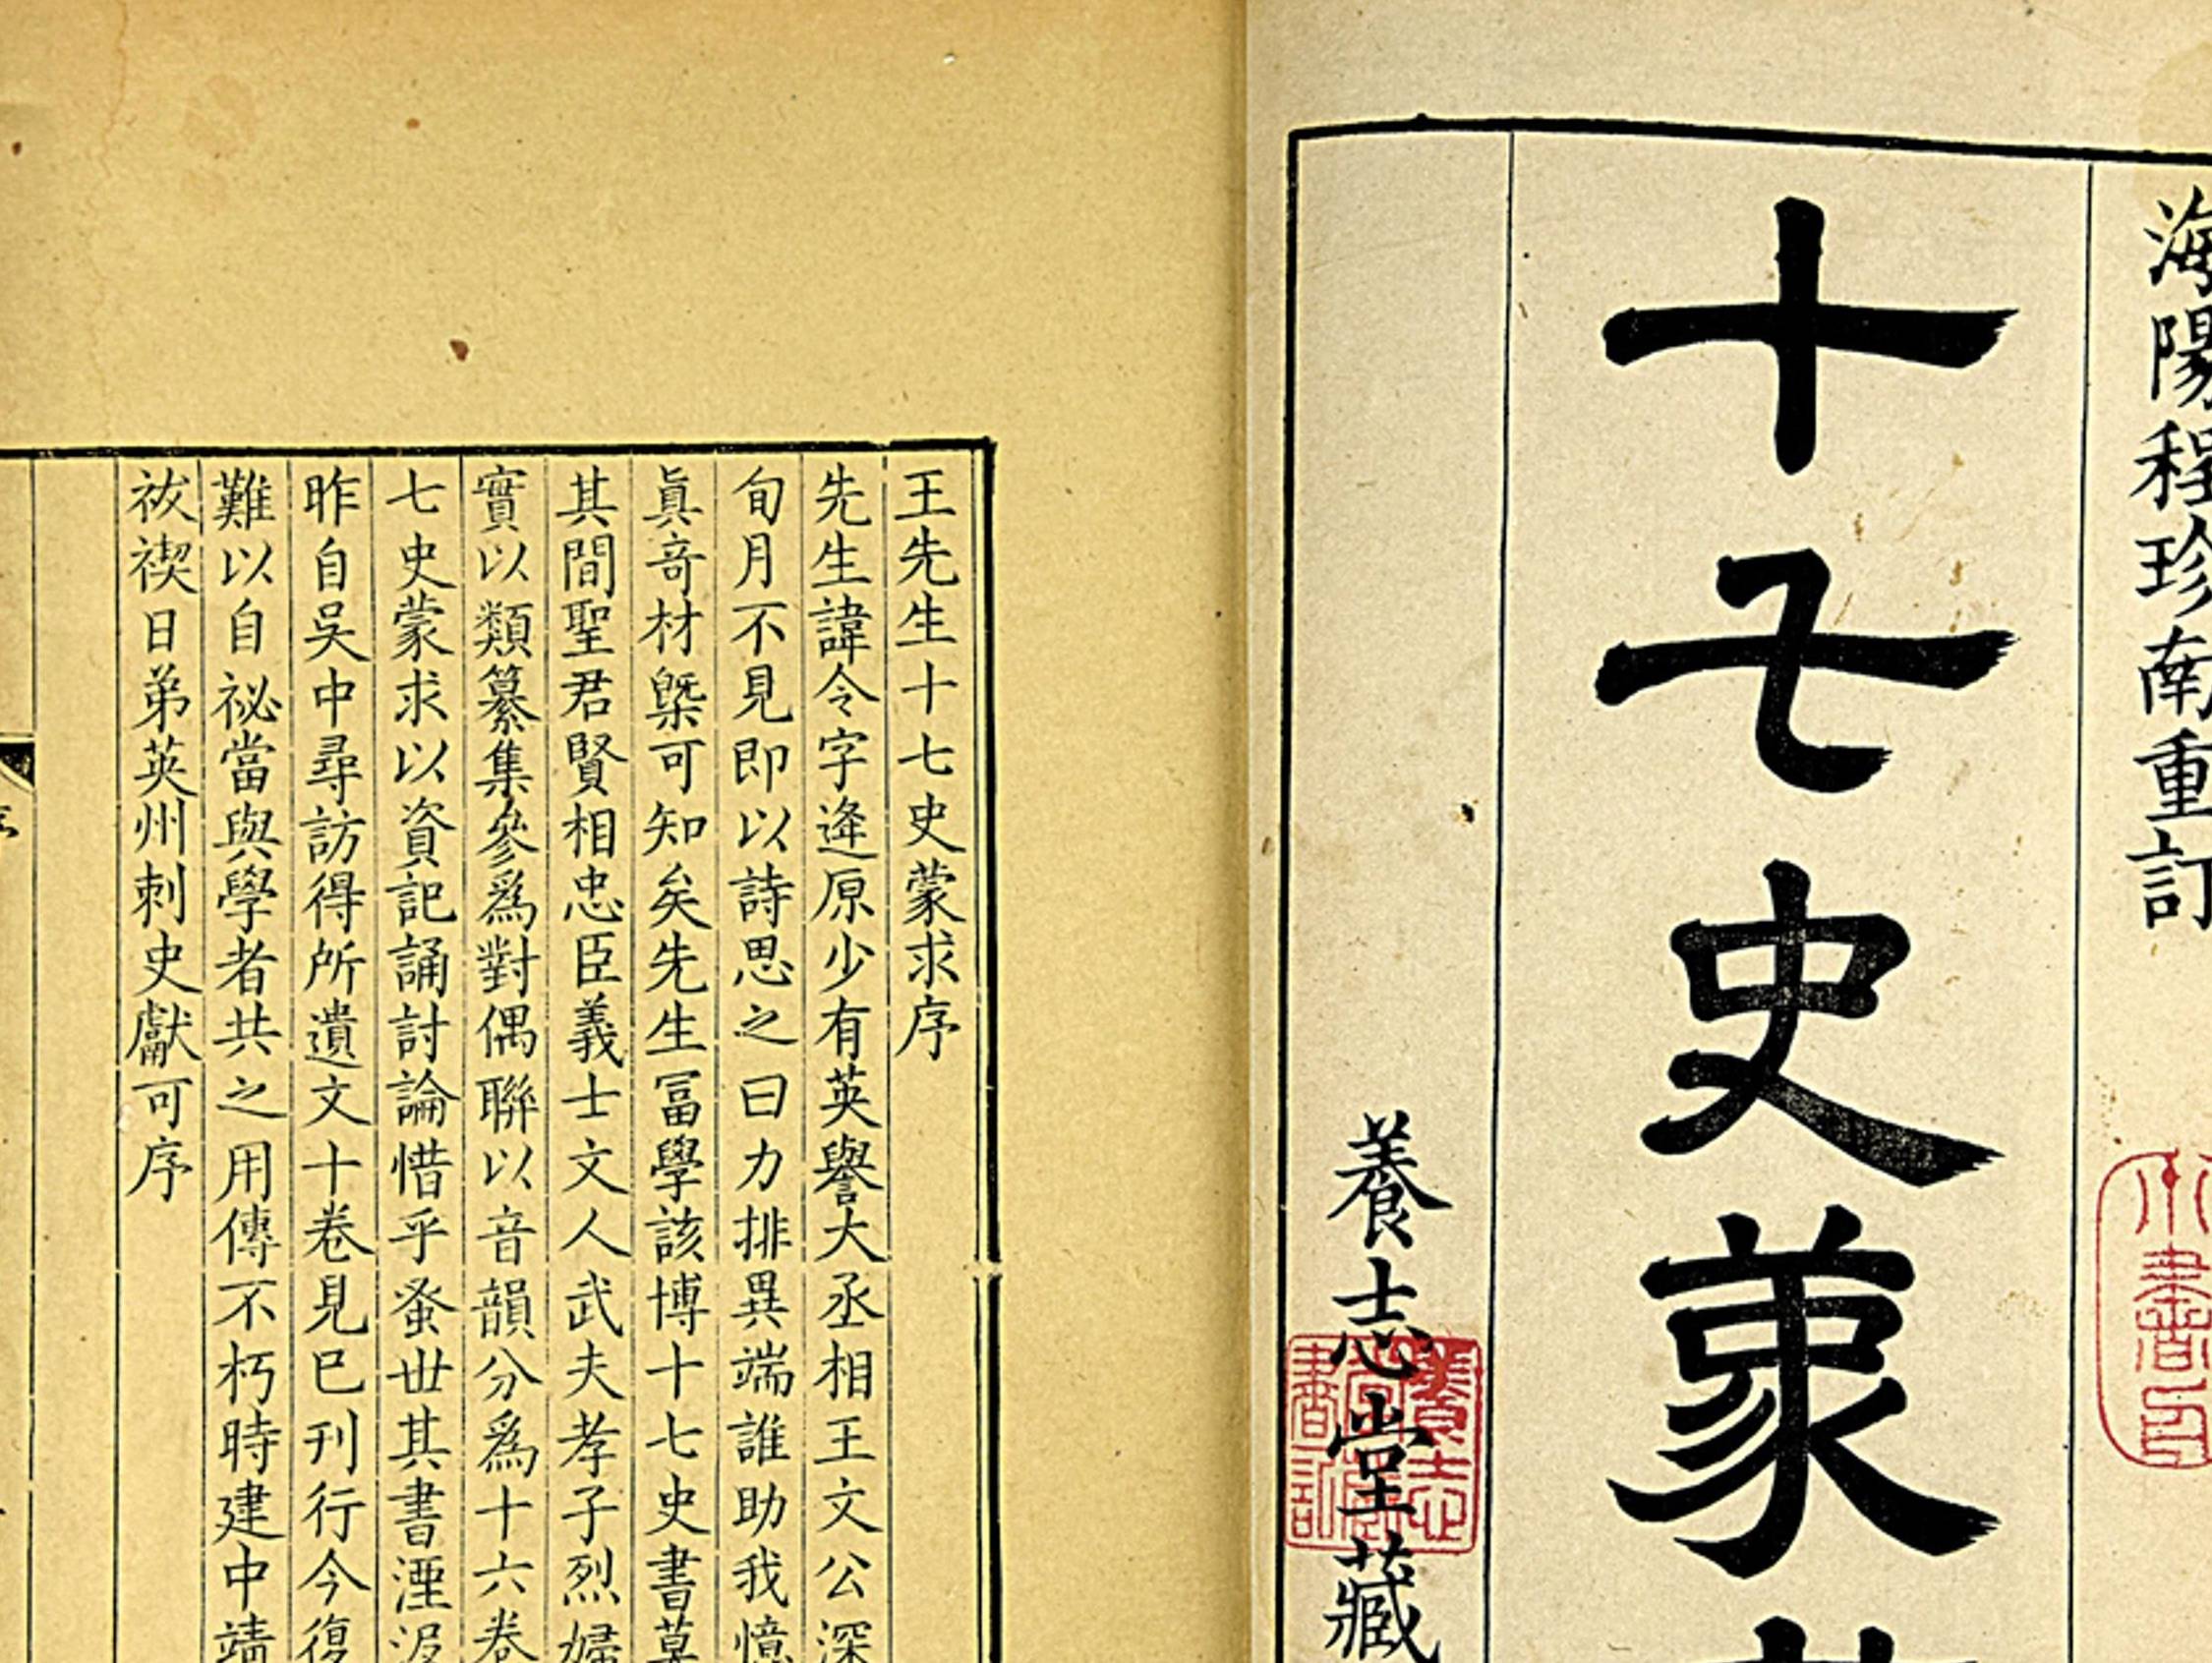 海陽程珍南重訂
十七史蒙
養志堂藏
王先生十七史蒙求序
先生諱令字逄原少有英譽大丞相王文公深
旬月不見即以詩思之曰力排異端誰助我憶
眞竒材槩可知矣先生冨學該博十七史書莫
其間聖君賢相忠臣義士文人武夫孝子烈婦
實以類纂集參爲對偶聯以音韻分爲十六卷
七史蒙求以資記誦討論惜乎蚤世其書湮沒
昨自吳中尋訪得所遺文十卷見已刋行今復
難以自祕當與學者共之用傳不朽時建中靖
祓禊日弟英州刺史獻可序